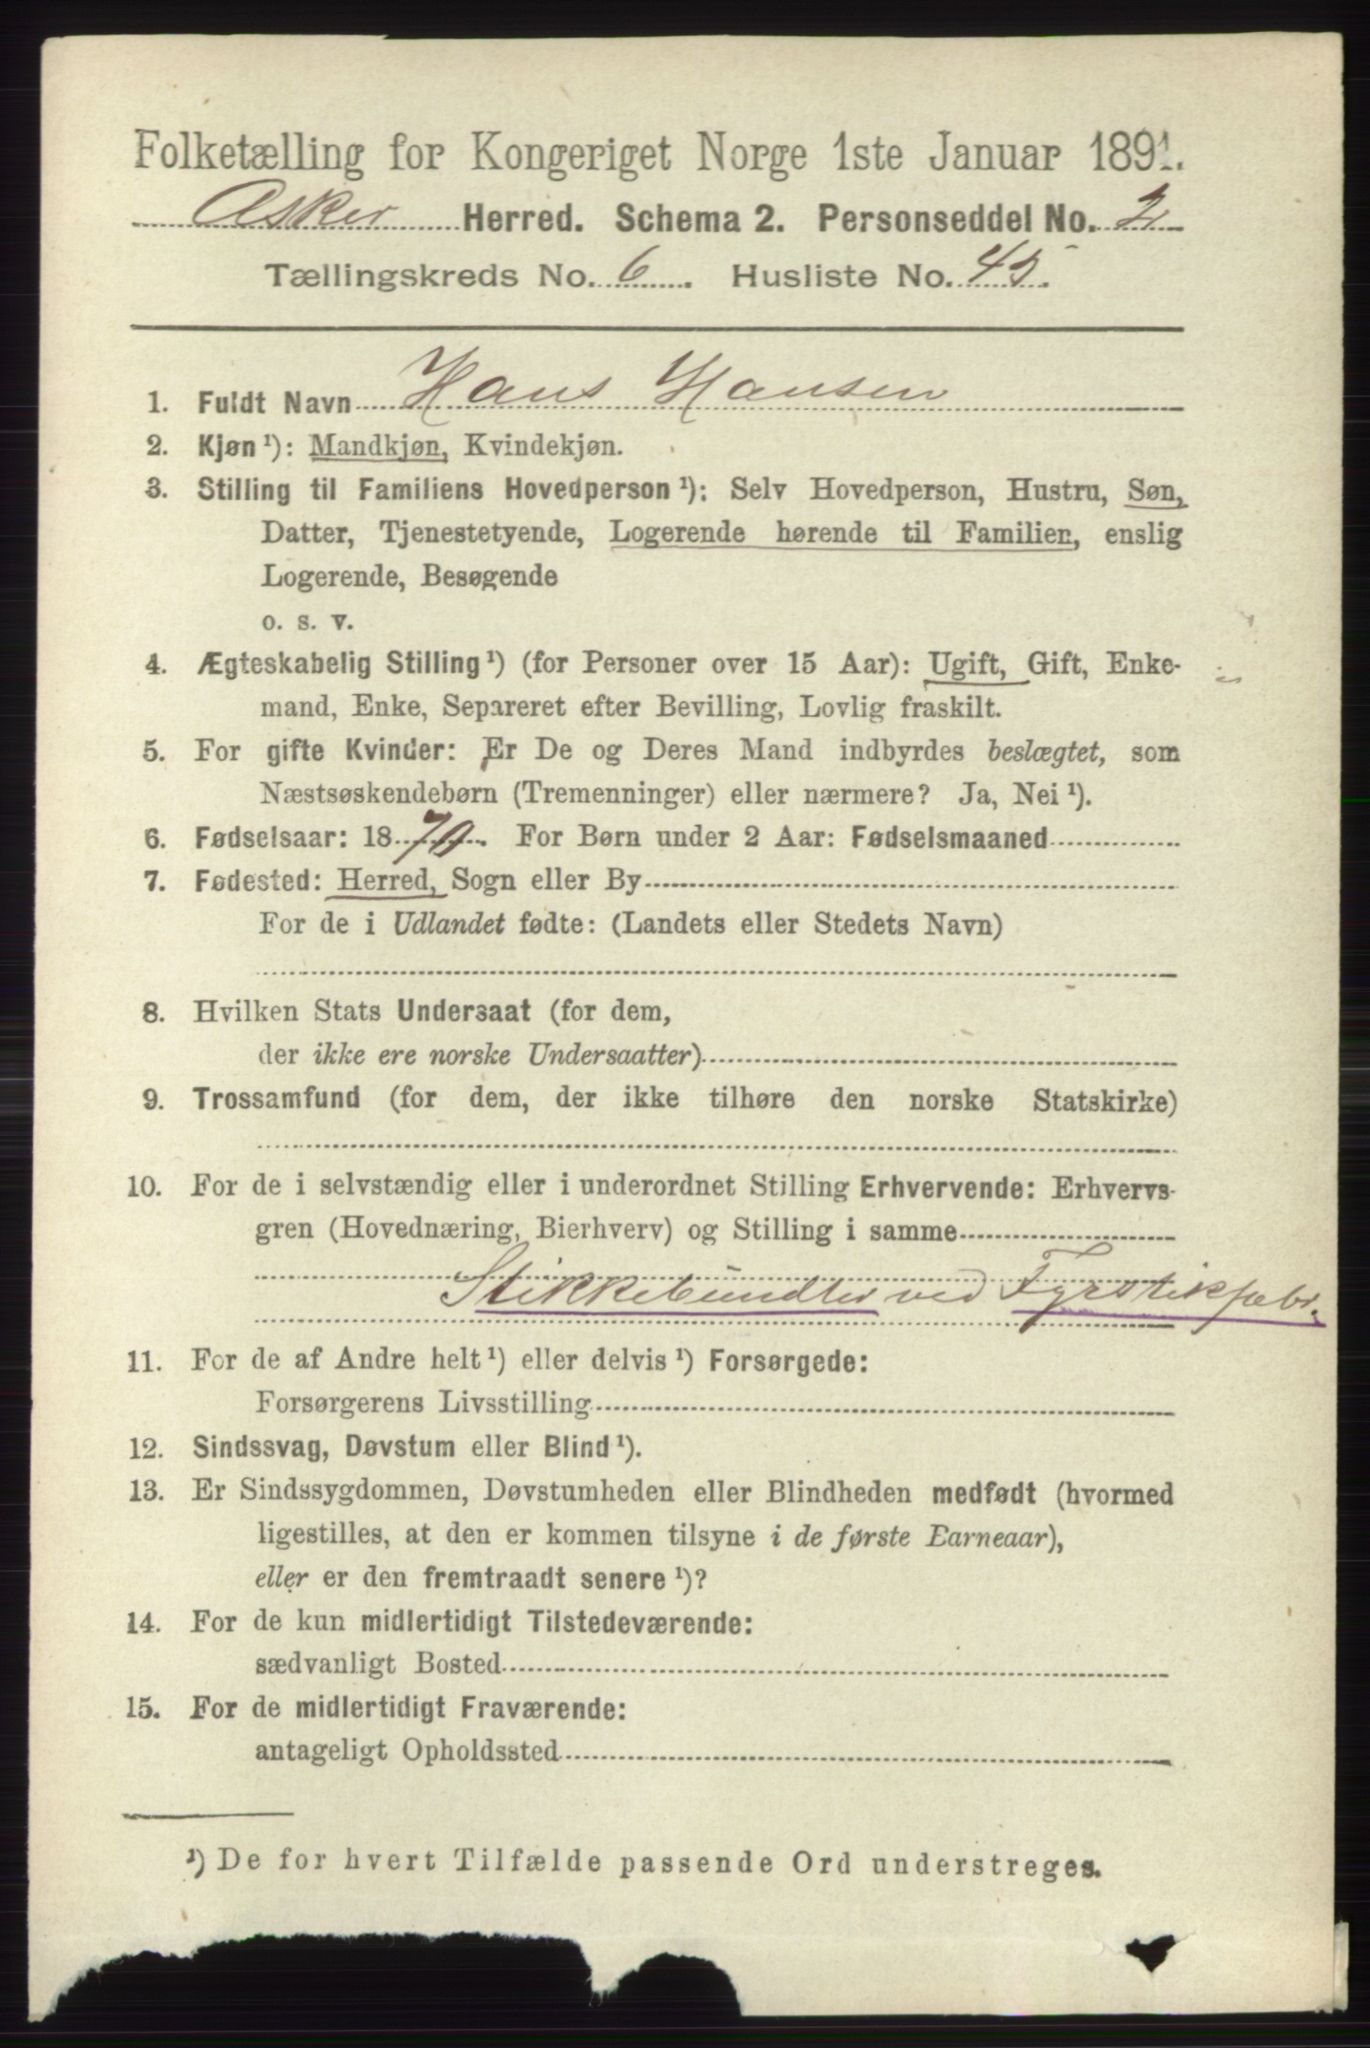 Folketælling for Kongeriget Norge 1ste Januar 1891.
Asker Herred. Schema 2. Personseddel No. 2
Tællingskreds No. 6. Husliste No. 45.
1. Fuldt Navn Hans Hansen
2. Kjøn¹): Mandkjøn, Kvindekjøn.
3. Stilling til Familiens Hovedperson¹): Selv Hovedperson, Hustru, Søn,
Datter, Tjenestetyende, Logerende hørende til Familien, enslig
Logerende, Besøgende
o. s. v.
4. Ægteskabelig Stilling¹) (for Personer over 15 Aar): Ugift, Gift, Enke-
mand, Enke, Separeret efter Bevilling, Lovlig fraskilt.
5. For gifte Kvinder: Er De og Deres Mand indbyrdes beslægtet, som
Næstsøskendebørn (Tremenninger) eller nærmere? Ja, Nei¹).
6. Fødselsaar: 1870. For Børn under 2 Aar: Fødselsmaaned
7. Fødested: Herred, Sogn eller By
For de i Udlandet fødte: (Landets eller Stedets Navn)
8. Hvilken Stats Undersaat (for dem,
der ikke ere norske Undersaatter)
9. Trossamfund (for dem, der ikke tilhøre den norske Statskirke)
10. For de i selvstændig eller i underordnet Stilling Erhvervende: Erhvervs-
gren (Hovednæring, Bierhverv) og Stilling i samme
Stikkebundter ved Fyrstikfabr.
11. For de af Andre helt¹) eller delvis¹) Forsørgede:
Forsørgerens Livsstilling
12. Sindssvag, Døvstum eller Blind¹).
13. Er Sindssygdommen, Døvstumheden eller Blindheden medfødt (hvormed
ligestilles, at den er kommen tilsyne i de første Barneaar),
eller er den fremtraadt senere¹)?
14. For de kun midlertidigt Tilstedeværende:
sædvanligt Bosted
15. For de midlertidigt Fraværende:
antageligt Opholdssted
¹) De for hvert Tilfælde passende Ord understreges.